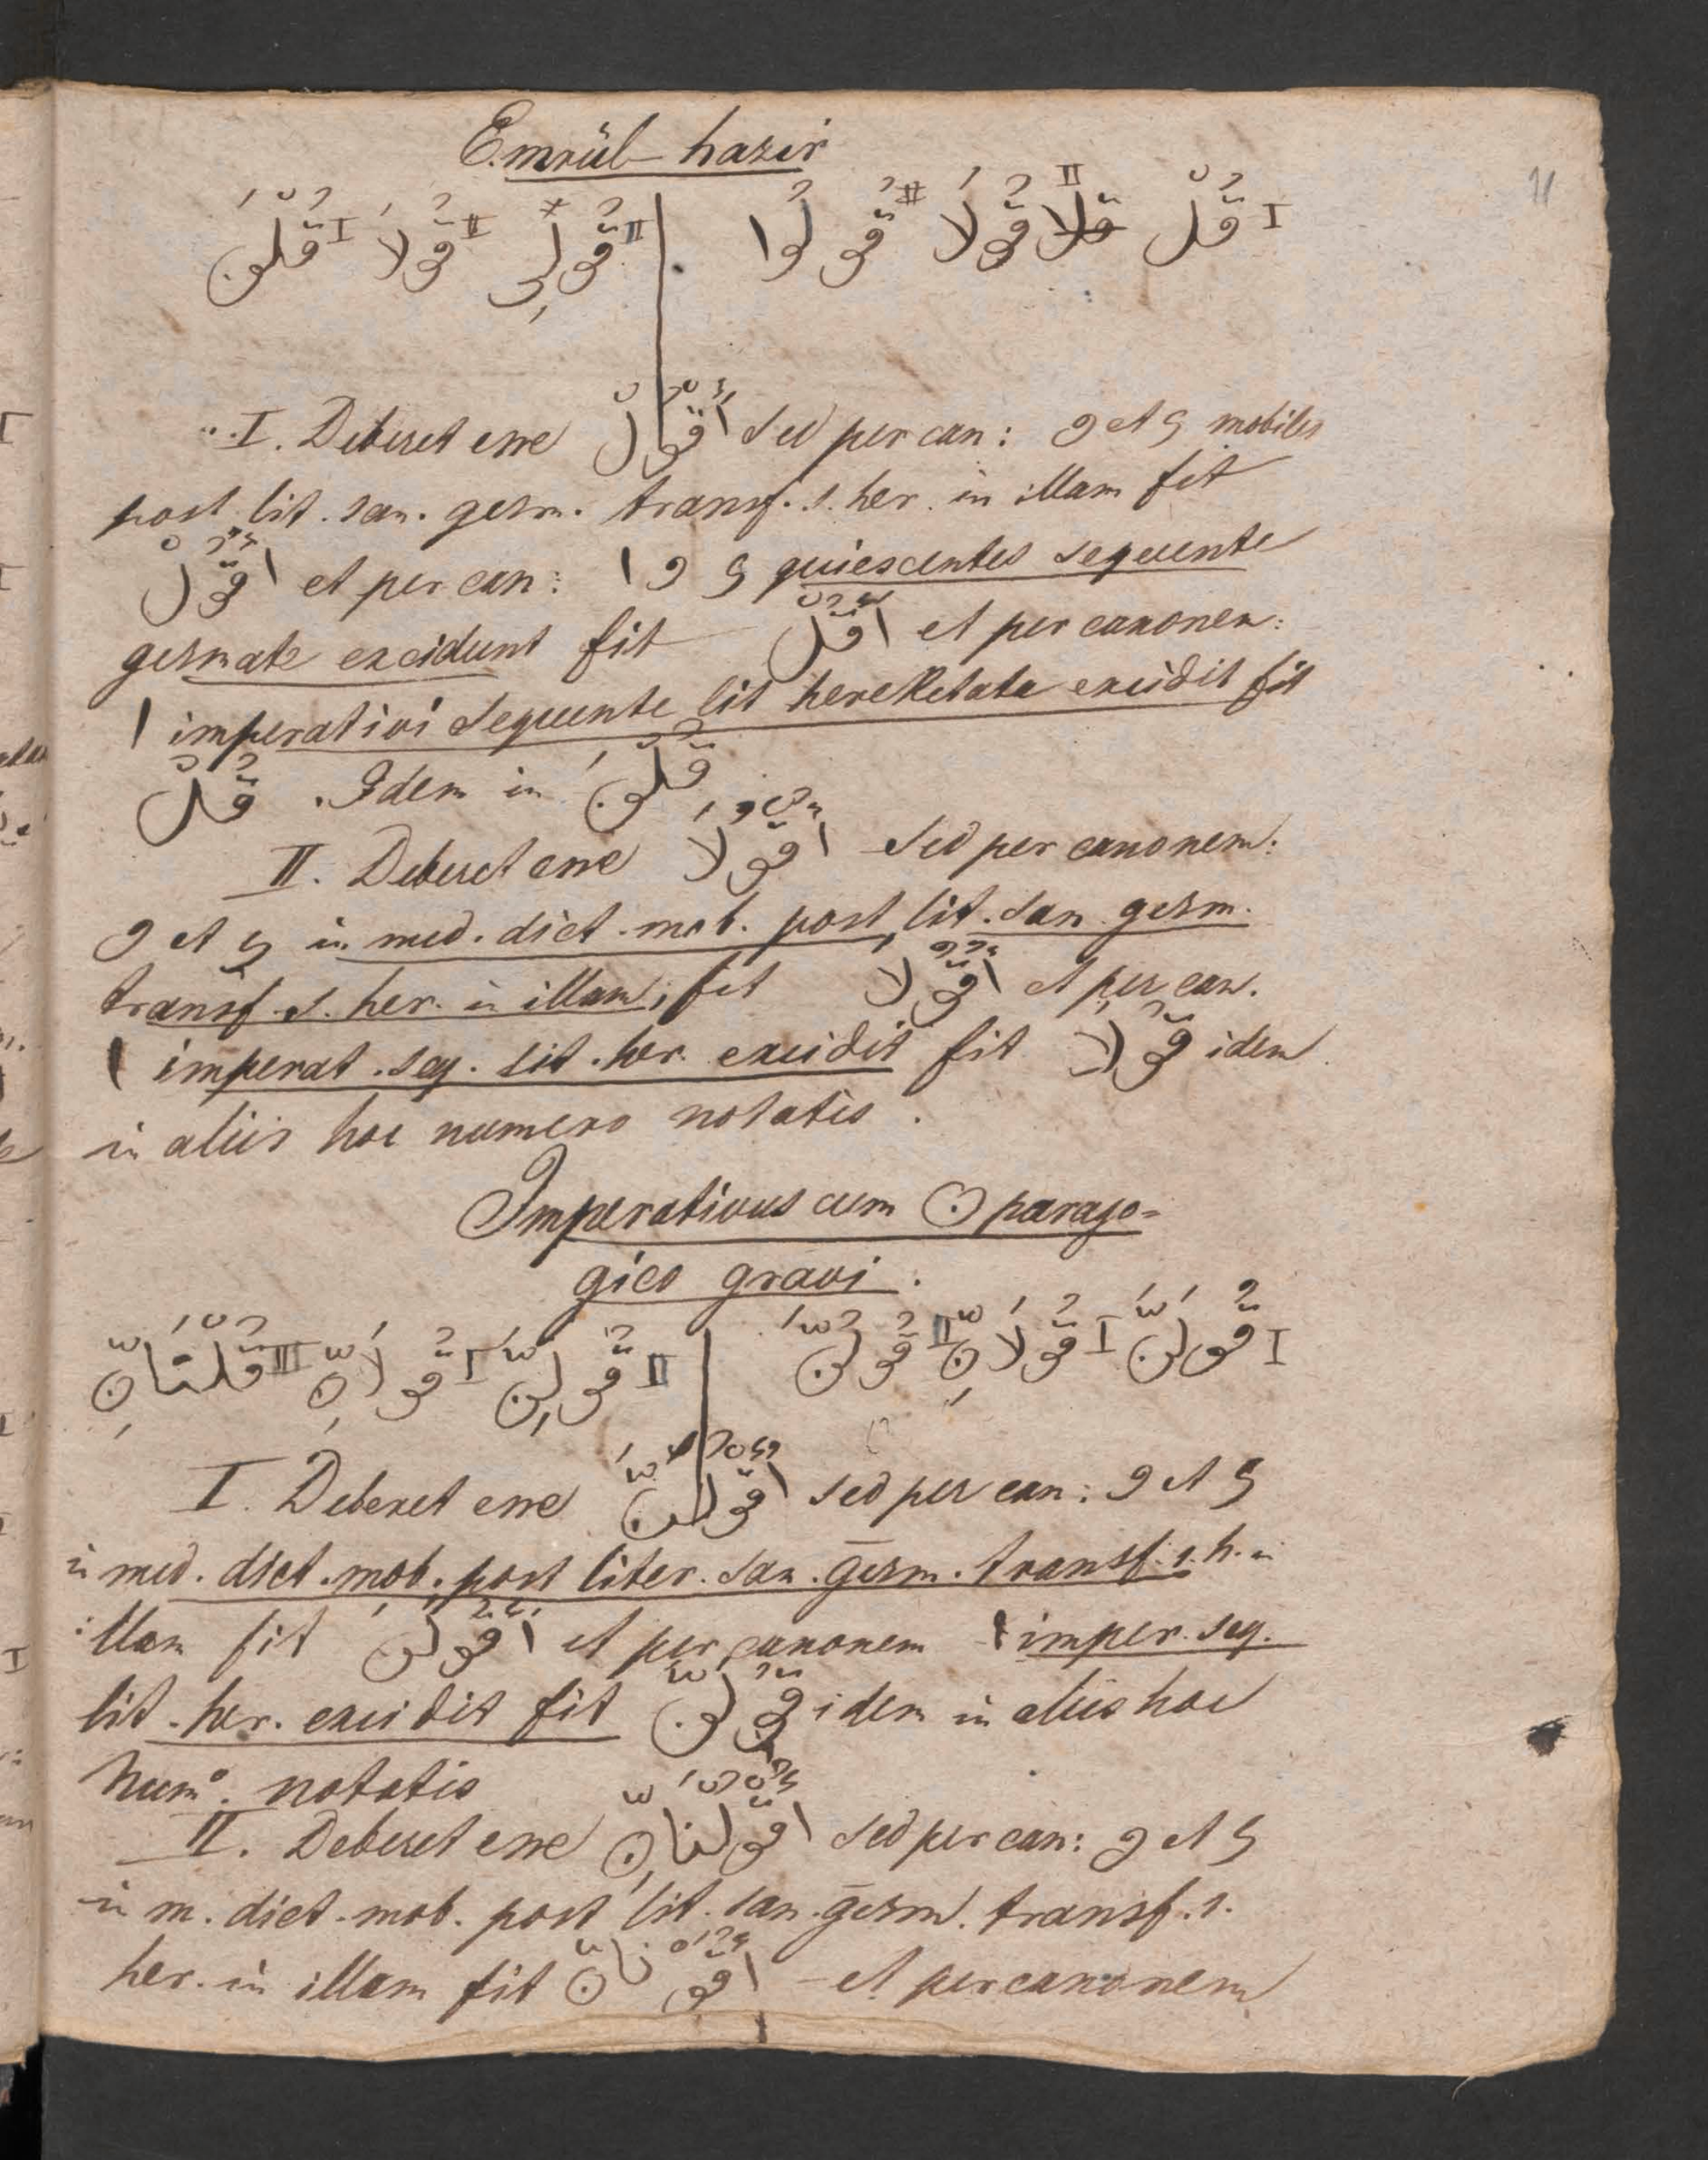 Emrül-hazir
11
I قُلْ II قُولَا II قُولُوا | II قُولِى II قُولَا I قُلْنَ
I. Deberet esse اُقْوُلْ sed per can: و et ی mobiles
post lit. san. gesm. transf. s. her. in illam fit
اُقُوْلْ et per can: ا و ی quiescentes sequente
gesmate excidunt fit اُقُلْ et per canonem:
ا imperativi sequente lit hereketata excidit fit
قُلْ . Idem in قُلْنَ
II. Deberet esse اُقْوُلَا sed per canonem:
و et ی in med. dict. mob. post lit. san. gesm.
transf. s. her. in illam, fit اُقُوْلَا et per can.
ا imperat. seq. lit. her. excidit fit قُوْلَا idem
in aliis hoc numero notatis.
Imperativus cum ن parago-
gico gravi.
I قُولَنَّ I قُولَانِّ II قُولُنَّ | II قُولِنَّ I قُولَانِّ III قُلْنَانِّ
I. Deberet esse اُقْوُلَنَّ sed per can: و et ی
in med. dict. mob. post liter. san. gesm. transf. s. h. in
illam fit اُقُولَنَّ et per canonem ا imper. seq.
lit. her. excidit fit قُولَنَّ idem in aliis hoc
Num°. notatis
II. Deberet esse اُقْوُلْنَانِّ sed per can: و et ی
in m. dict. mob. post lit. san. gesm. transf. s.
her. in illam fit اقو نانّ – et per canonem